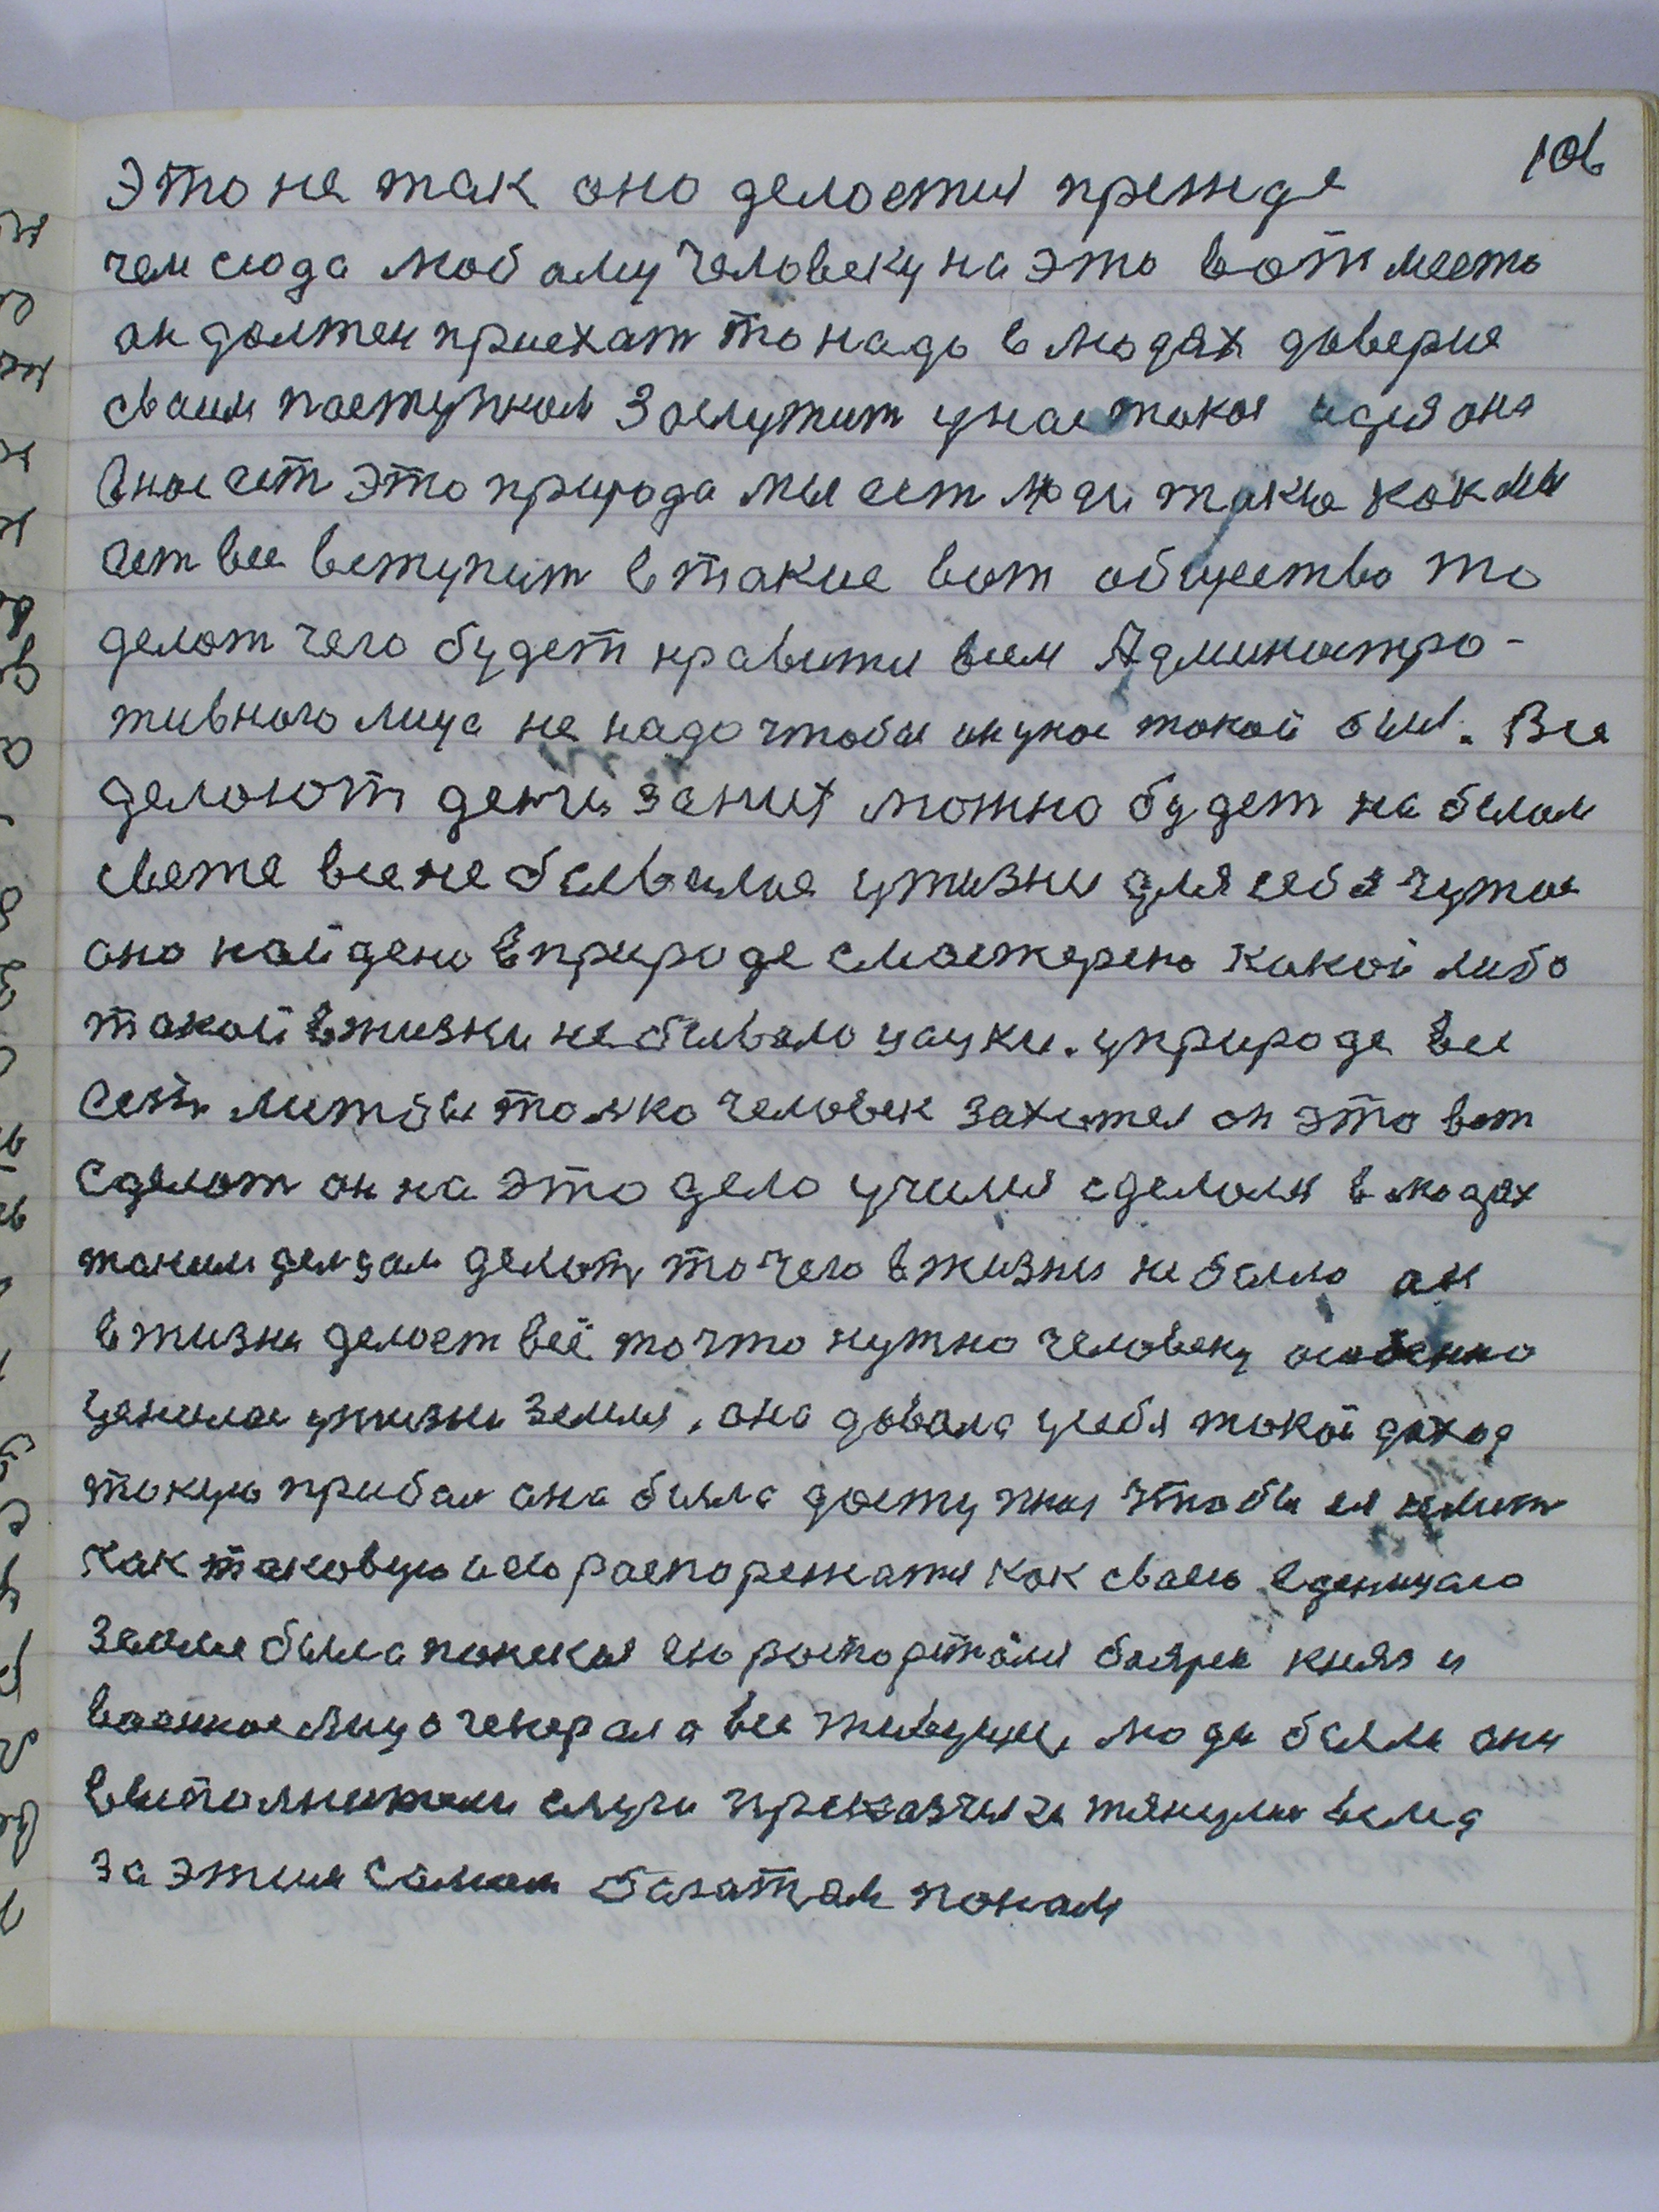 106
Это не так оно делоетия прежде
чем сюда любому человеку на это вот место
он должен приехат то надо в людях доверие
сваим паступком Заслужит унас такоя идея она
внас ест это природа мы ест люди такие как мы
ест все вступит в такие вот общество то
делат чего будет нравитися всем Администро-
тивного лица не надо чтобы он унас такой был. Все
делоют деньги за них можно будет на белом
свете все не бывалое ужизни для себя чужое
оно найдено в природе смастерено какой либо
такой в жизни не бывало уауки. уприроде все
есть литбы толко человек захотел он это вот
сделат он на это дело учился сделался в людях
таким делцам делот то чего в жизни не было он
в жизни делает всё то что нужно человеку особенно
ценилас ужизни Земля. она давала усебя такой доход
такую прибал она была доступная чтобы ея
как таковую и ею распорежатися как сваею еденицаю
Земля была панская ею распоряжалися бояры княз и
ваенное лицо генерал а все живущие люди были они
выполнителями слуги приказчика тянулис вслед
за этим самим багатам понам